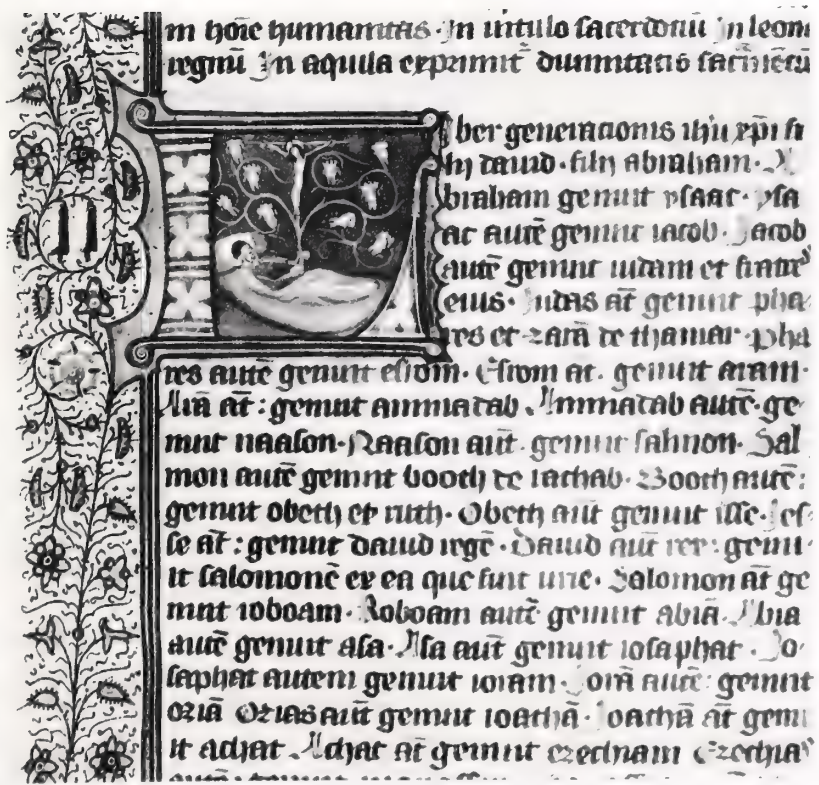 In hoīe humanitas. In uitulo sacerdotiū In leone
regnū In aquila exprimit̄ diuinitatis sacr̄mētū
Liber generationis ihū xp̄i fi
lij dauid. filij abraham. A
braham genuit ysaac. ysa
ac autē genuit iacob. Iacob
autē genuit iudam et fratres
eius. Iudas at̄ genuit pha
res et zarā de thamar. pha
res autē genuit esrom. Esrom at. genuit aram.
Arā at̄: genuit aminadab. Aminadab autē. ge
nuit naason. Naason aut̄. genuit salmon. Sal
mon autē genuit booth de rachab. Booth autē:
genuit obeth ex ruth. Obeth aut̄ genuit isse. Jes
se at̄: genuit dauid regē. Dauid aut̄ rex: genu
it salomonē ex ea que fuit urie. Salomon at̄ ge
nuit roboam. Roboam autē genuit abiā. Abia
autē genuit asa. Asa aut̄ genuit iosaphat. Jo
saphat autem genuit ioram. Jorā autē: genuit
oziā Ozias aut̄ genuit ioathā. Joathā at̄ genu
it achat. Achat at̄ genuit ezechiam Ezechias